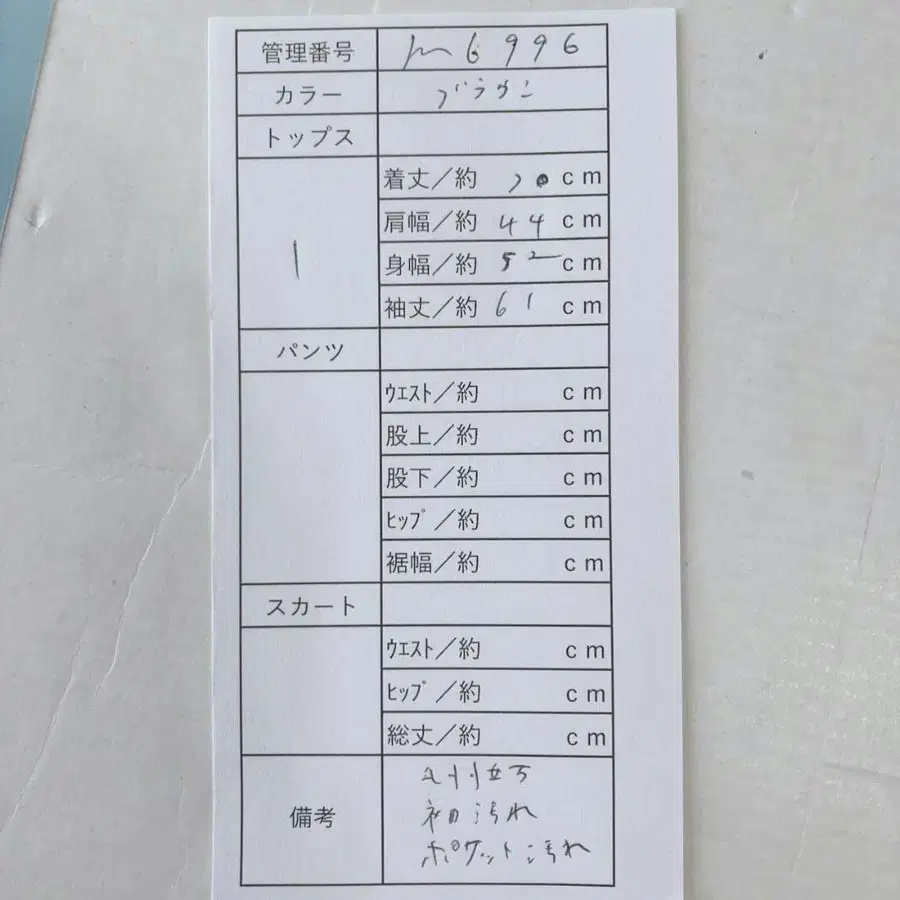 管理番号 m6996
カラー ブラウン
トップス
着丈／約 70 cm
1 肩幅／約 44 cm
身幅／約 52 cm
袖丈／約 61 cm
パンツ
ｳｴｽﾄ／約 cm
股上／約 cm
股下／約 cm
ﾋｯﾌﾟ／約 cm
裾幅／約 cm
スカート
ｳｴｽﾄ／約 cm
ﾋｯﾌﾟ／約 cm
総丈／約 cm
備考
袖汚れ
ポケット汚れ